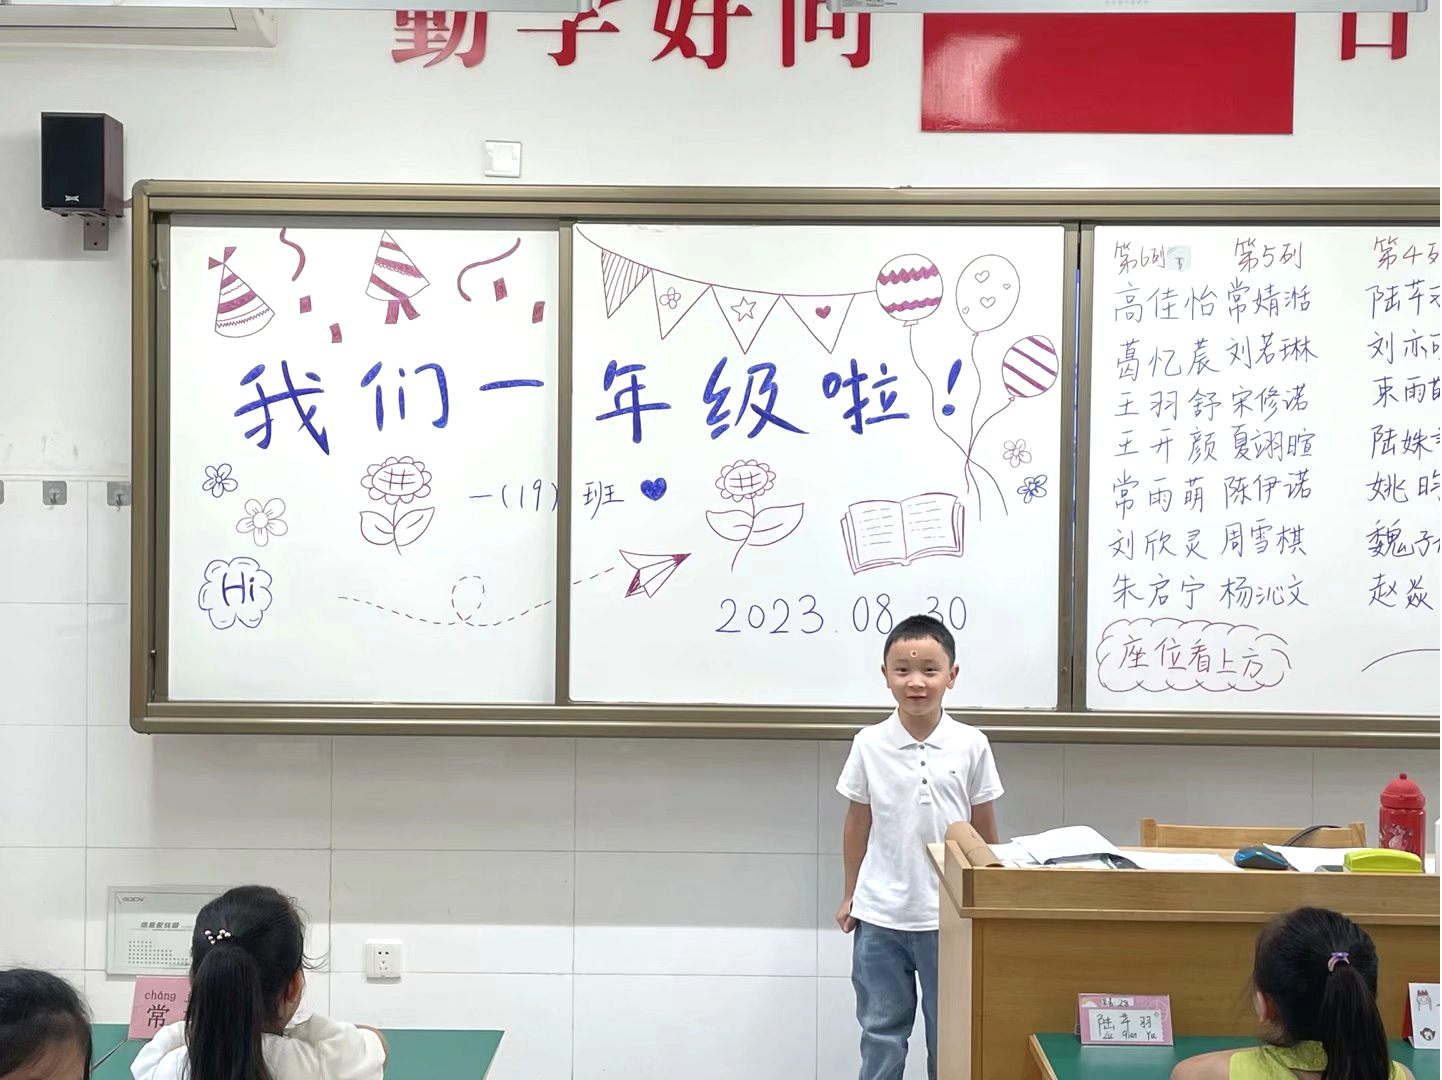 勤学好问
我们一年级啦！
一(19)班
Hi
2023.08.30
第6列 第5列 第4列
高佳怡 常婧湉 陆芊羽
葛忆宸 刘若琳 刘亦
王羽舒 宋修诺 束雨萌
王开颜 夏翊暄 陆姝
常雨萌 陈伊诺 姚昀
刘欣灵 周雪棋 魏子
朱启宁 杨沁文 赵焱
座位看上方
信息配线箱
cháng
常
陆芊羽
Lu qian yu